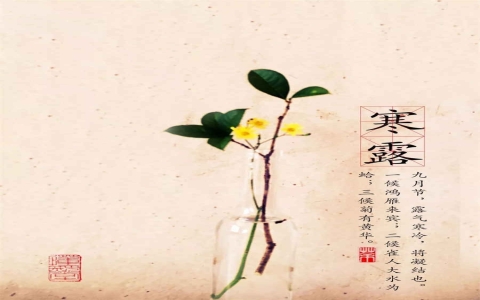 寒露
九月节，露气寒冷，将凝结也。
一候鸿雁来宾；二候雀人大水为
蛤；三候菊有黄华。